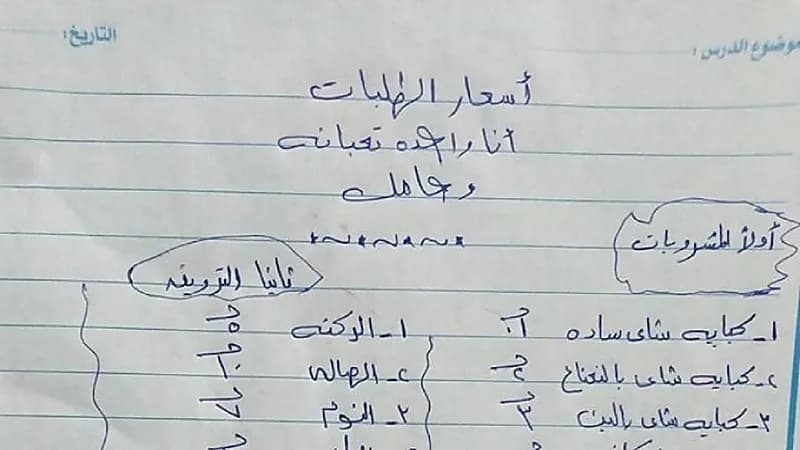 موضوع الدرس :
التاريخ:
أسعار الطلبات
أنا واحده تعبانه
وحامل
أولاً المشروبات
١ـ كبايه شاى ساده ١ج
٢ـ كبايه شاى بالنعناع ٢ج
٣ـ كبايه شاى بالبن ٣ج
ثانيا الترويقه
١ـ الركنه ٥ج
٢ـ الصاله ١٠ج
٣ـ النوم ٧ج